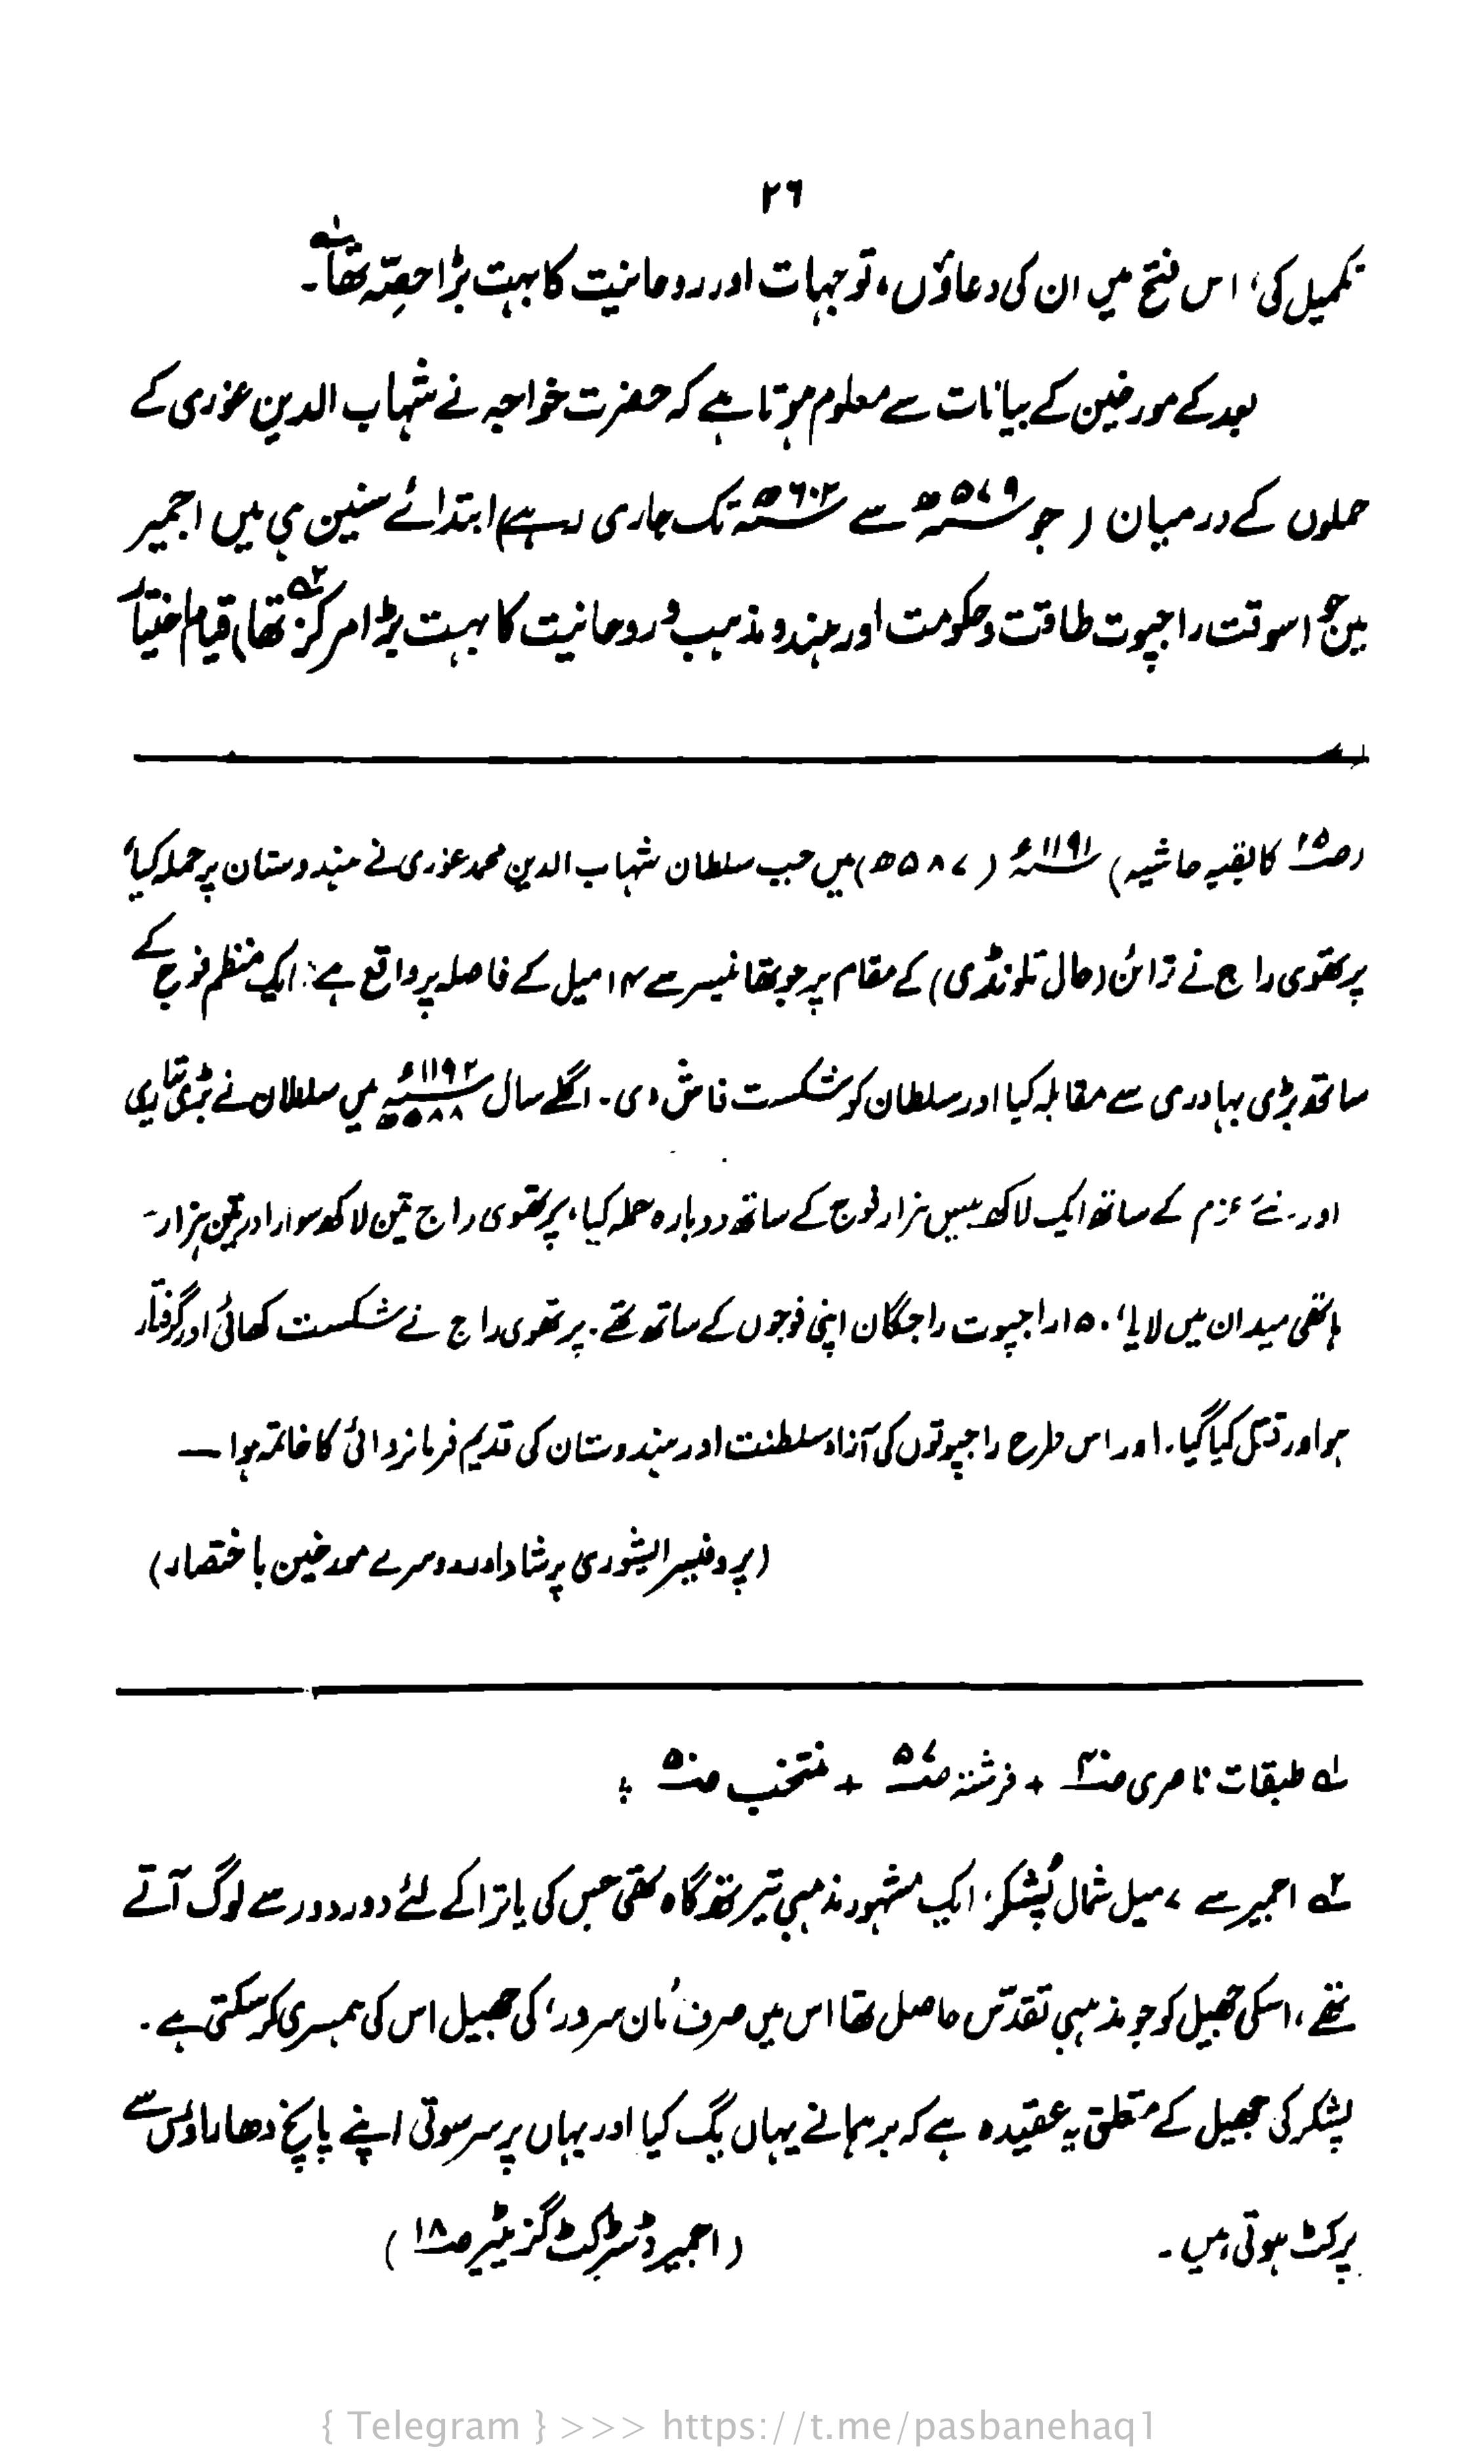 ۲۶
تکمیل کی، اس فتح میں ان کی دعاؤں، توجہات اور روحانیت کا بہت بڑا حصّہ تھا۔ ۱ے
بعد کے مورخین کے بیانات سے معلوم ہوتا ہے کہ حضرت خواجہ نے شہاب الدین غوری کے
حملوں کے درمیان (جو ۵۷۹ھ سے ۶۰۲ھ تک جاری رہے) ابتدائے سنین ہی میں اجمیر
میں (جو اسوقت راجپوت طاقت و حکومت اور ہندو مذہب و روحانیت کا بہت بڑا مرکز ۲ے تھا) قیام اختیار
(ص۲۵ کا بقیہ حاشیہ) ۱۱۹۱ء (۵۸۷ھ) میں جب سلطان شہاب الدین محمد غوری نے ہندوستان پر حملہ کیا،
پرتھوی راج نے ترائن (حال تلونڈی) کے مقام پر جو تھانیسر سے ۱۴ میل کے فاصلہ پر واقع ہے، ایک منظم فوج کے
ساتھ بڑی بہادری سے مقابلہ کیا اور سلطان کو شکست فاش دی۔ اگلے سال ۱۱۹۲ء ۵۸۸ھ میں سلطان نے بڑی تیاری
اور نئے عزم کے ساتھ ایک لاکھ بیس ہزار فوج کے ساتھ دوبارہ حملہ کیا، پرتھوی راج تین لاکھ سوار اور تین ہزار۔
ہاتھی میدان میں لایا، ۱۵۰ راجپوت راجگان اپنی فوجوں کے ساتھ تھے۔ پرتھوی راج نے شکست کھائی اور گرفتار
ہوا اور قتل کیا گیا۔ اور اس طرح راجپوتوں کی آزاد سلطنت اور ہندوستان کی قدیم فرمانروائی کا خاتمہ ہوا —
(پروفیسر ایشوری پرشاد اور دوسرے مورخین باختصار)
۱ے طبقات ناصری ص + فرشتہ ص۵۷ + منتخب ص۵۰ ؛
۲ے اجمیر سے ۷ میل شمال پُشکر، ایک مشہور مذہبی تیرتھ گاہ تھی جس کی یاترا کے لئے دور دور سے لوگ آتے
تھے، اسکی جھیل کو جو مذہبی تقدّس حاصل تھا اس میں صرف ’مان سرور‘ کی جھیل اس کی ہمسری کر سکتی ہے۔
پشکر کی جھیل کے متعلق یہ عقیدہ ہے کہ برہما نے یہاں یگ کیا اور یہاں پر سرسوتی اپنے پانچ دھاراؤں سے
پرکٹ ہوتی ہیں۔ (اجمیر ڈسٹرکٹ گزیٹیر ص۱۸)
{ Telegram } >>> https://t.me/pasbanehaq1